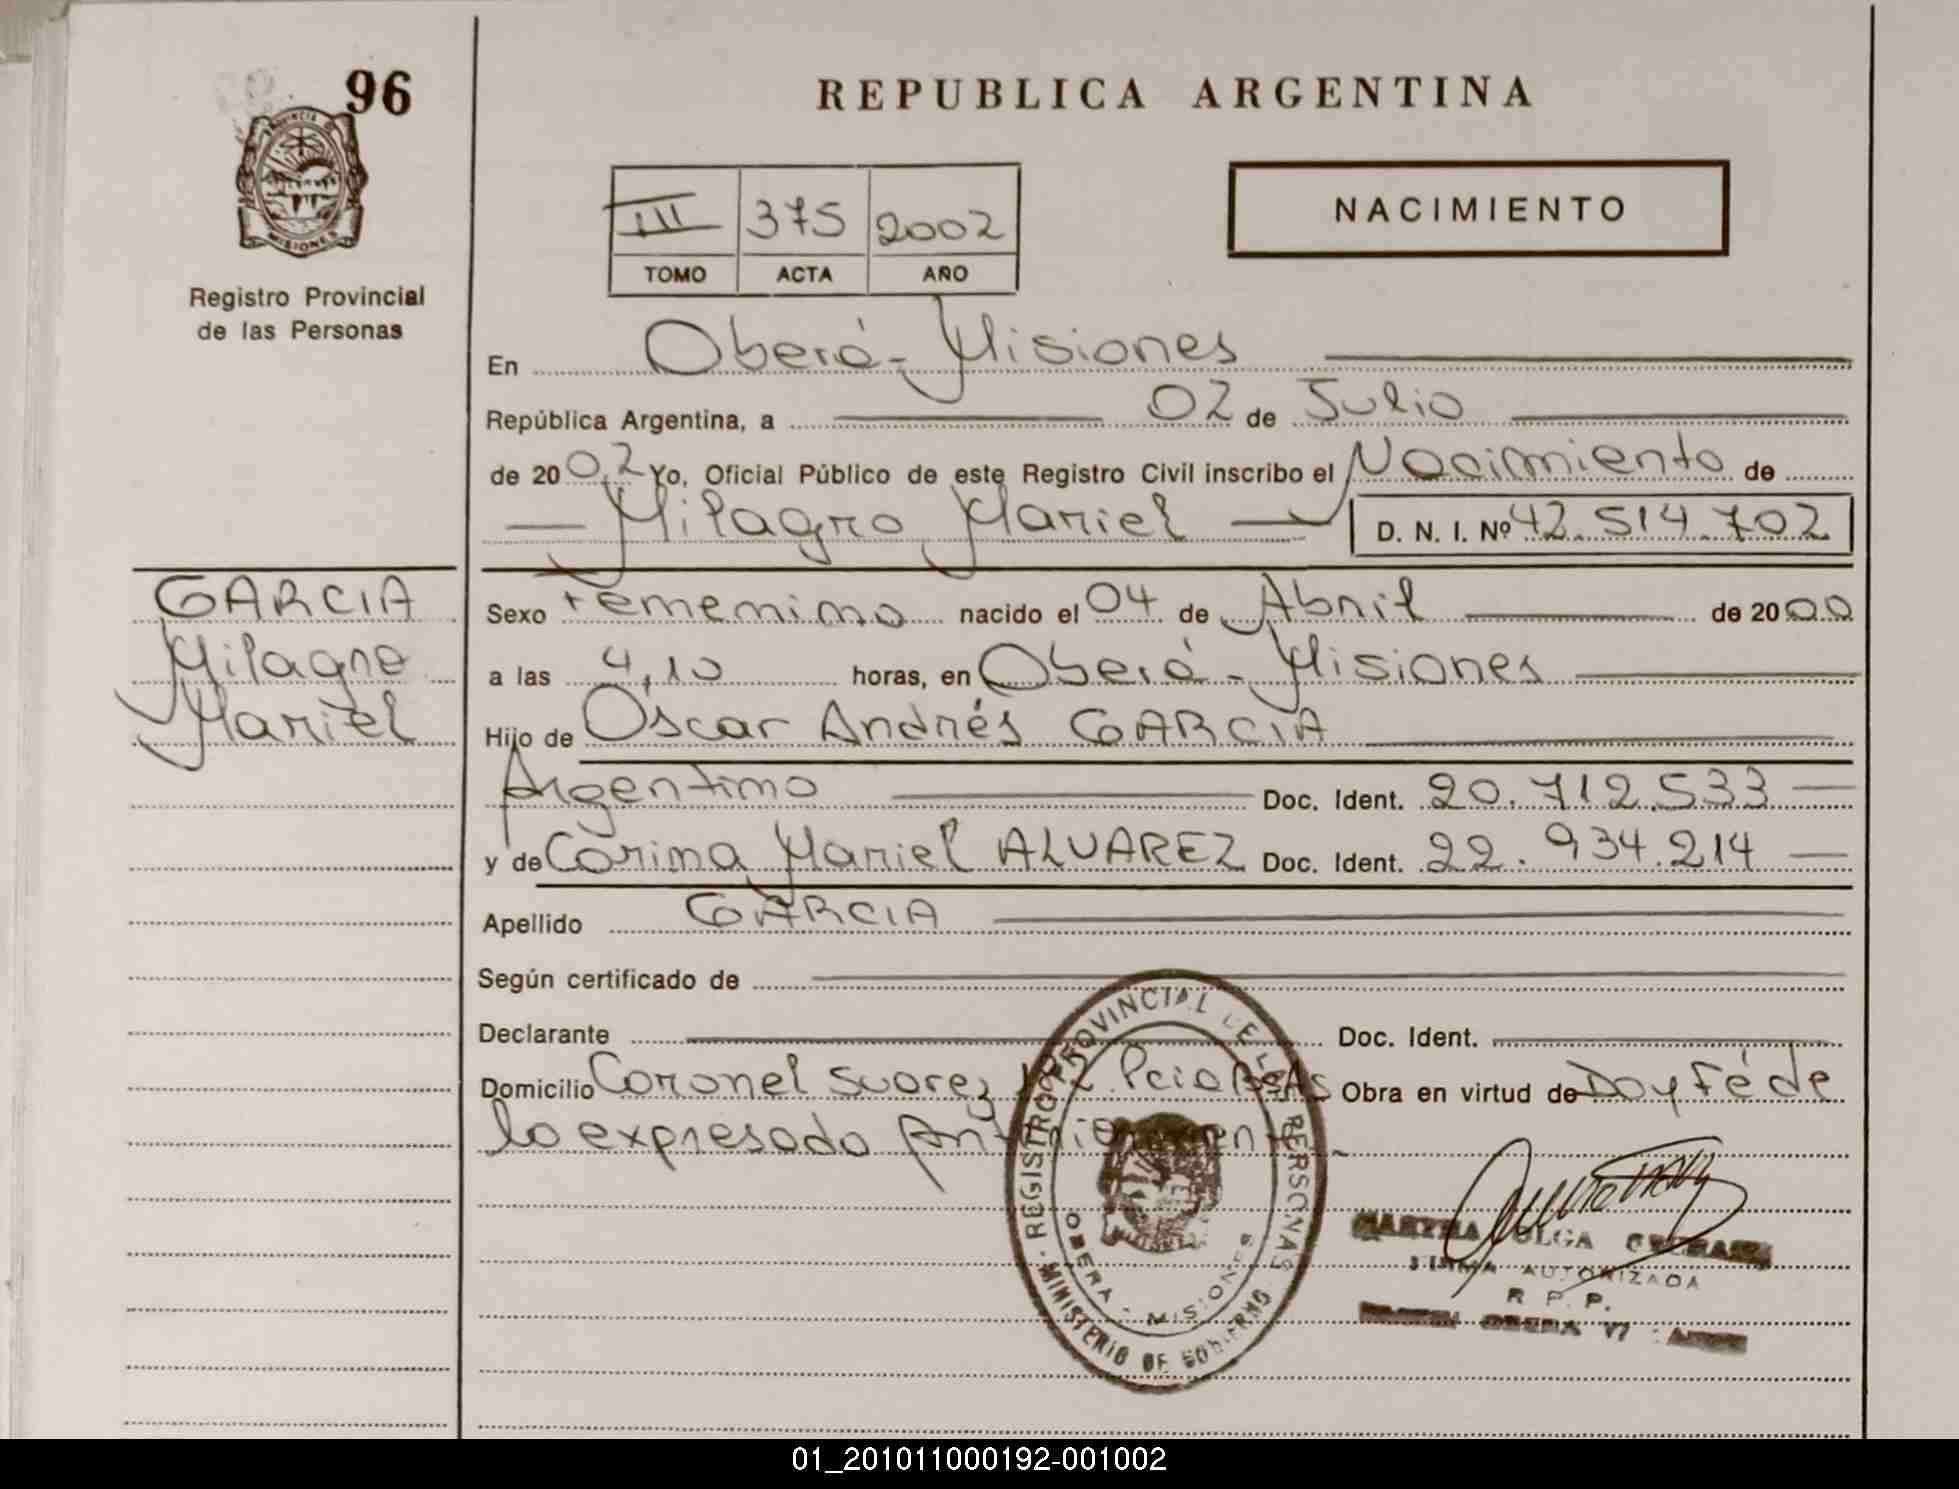 96
REPUBLICA ARGENTINA
PROVINCIA DE
MISIONES
Registro Provincial
de las Personas
III 375 2002
TOMO ACTA AÑO
NACIMIENTO
En Oberá - Misiones
República Argentina, a 02 de Julio
de 2002 Yo, Oficial Público de este Registro Civil inscribo el Nacimiento de
Milagro Mariel D. N. I. Nº 42.514.702
GARCIA
Milagro
Mariel
Sexo Femenino nacido el 04 de Abril de 2000
a las 4,10 horas, en Oberá - Misiones
Hijo de Oscar Andrés GARCIA
Argentino Doc. Ident. 20.712.533
y de Corina Mariel ALVAREZ Doc. Ident. 22.934.214
Apellido GARCIA
Según certificado de
Declarante Doc. Ident.
Domicilio Coronel Suarez Pcia BsAs Obra en virtud de Doy Fé de
lo expresado Anteriormente
REGISTRO PROVINCIAL DE LAS PERSONAS
MINISTERIO DE GOBIERNO
OBERA - MISIONES
MARTHA OLGA
FIRMA AUTORIZADA
R. P. P.
OBERA
01_201011000192-001002